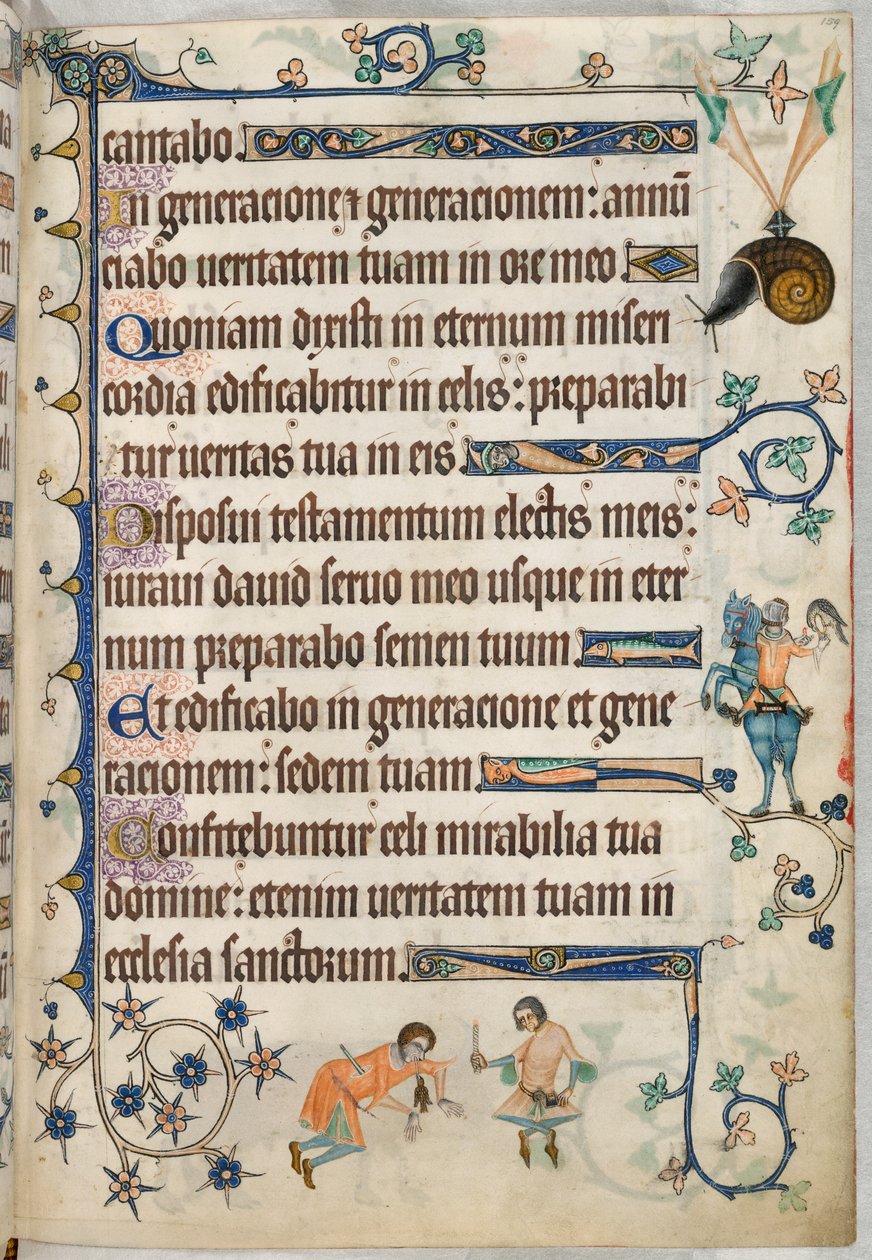 159
cantabo.
In generacione ⁊ generacionem: annū
ciabo ueritatem tuam in ore meo.
Quoniam dixisti in eternum miseri
cordia edificabitur in celis: preparabi
tur ueritas tua in eis.
Disposui testamentum electis meis:
iuraui dauid seruo meo usque in eter
num preparabo semen tuum.
Et edificabo in generacione et gene
racionem: sedem tuam.
Confitebuntur celi mirabilia tua
domine: etenim ueritatem tuam in
ecclesia sanctorum.